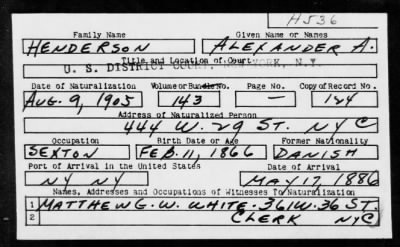 H536
Family Name Given Name or Names
HENDERSON ALEXANDER A.
Title and Location of Court
U. S. DISTRICT COURT, NEW YORK, N.Y.
Date of Naturalization Volume or Bundle No. Page No. Copy of Record No.
AUG. 9, 1905 143 — 184
Address of Naturalized Person
444 W. 29 ST. NYC
Occupation Birth Date or Age Former Nationality
SEXTON FEB. 11, 1866 DANISH
Port of Arrival in the United States Date of Arrival
NY NY MAY 17, 1886
Names, Addresses and Occupations of Witnesses To Naturalization
1 MATTHEW G. W. WHITE - 361 W. 36 ST.
2 CLERK NYC